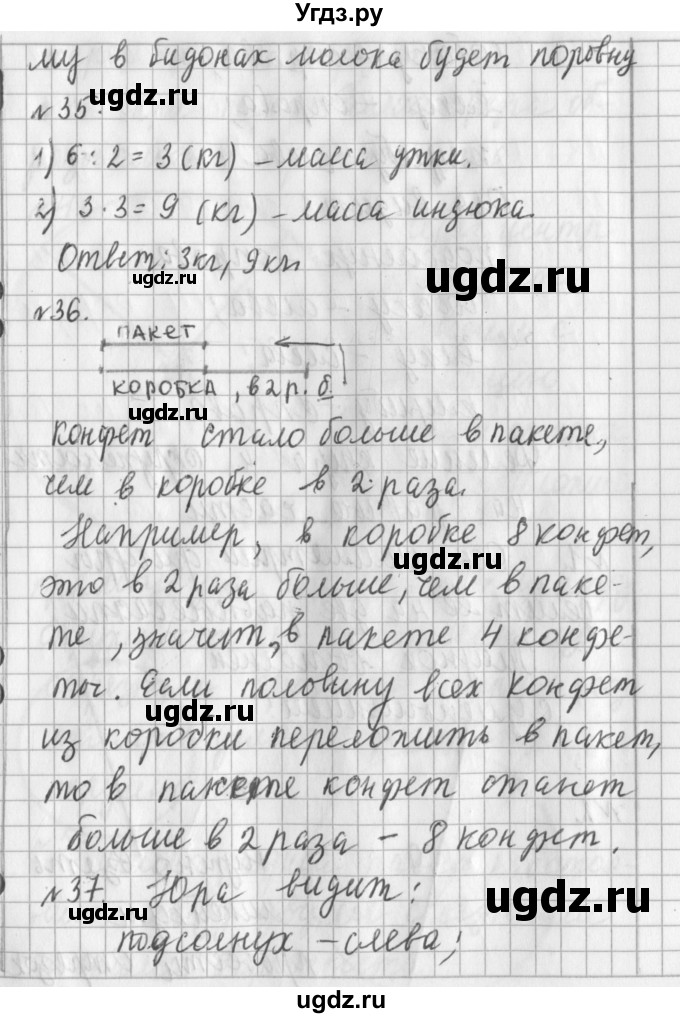 Угдз.ру
му в бидонах молока будет поровну
ugdz.ru
№35.
ugdz.ru
1) 6 : 2 = 3 (кг) – масса утки.
2) 3 · 3 = 9 (кг) – масса индюка.
ugdz.ru
Ответ: 3кг, 9кг.
ugdz.ru
№36.
ПАКЕТ
КОРОБКА, в 2 р. б.
ugdz.ru
Конфет стало больше в пакете,
чем в коробке в 2 раза.
ugdz.ru
Например, в коробке 8 конфет,
ugdz.ru
это в 2 раза больше, чем в паке-
те, значит, в пакете 4 конфе-
ты. Если половину всех конфет
ugdz.ru
из коробки переложить в пакет,
ugdz.ru
то в пакете конфет станет
больше в 2 раза – 8 конфет.
№37 Юра видит:
ugdz.ru
ugdz.ru
подсолнух – слева;
ugdz.ru